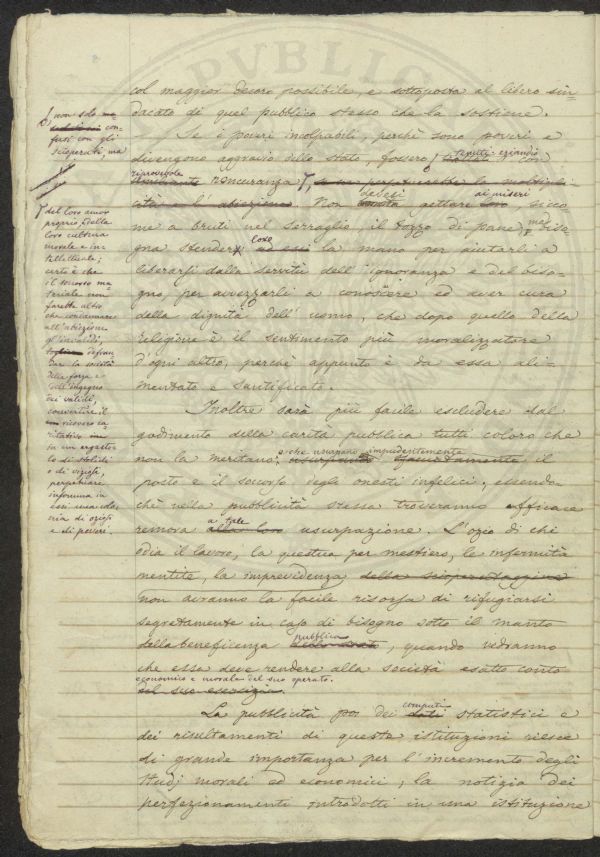 PVBLICA
col maggior decoro possibile, e sottoposta al libero sin=
dacato di quel pubblico stesso che la sostiene.
Se i poveri incolpabili, perchè sono poveri e
divengono aggravio dello stato, fossero
reputi eziandio
con
riprovevole
noncuranza
se ne perpetuerebbe la moltipli=
cità e l'abiezione. Non
devesi
gettare loro
ai miseri
sicco
me a bruti nel serraglio il tozzo di pane,
ma
biso=
gna stendere ad essi
loro
la mano per aiutarli a
liberarsi dalla servitù dell'ignoranza e del biso=
gno, per avvezzarli a conoscere ed aver cura
della dignità dell'uomo, che dopo quello della
religione è il sentimento più moralizzatore
d'ogni altro, perchè appunto è da essa ali=
mentato e santificato.
Inoltre sarà più facile escludere dal
godimento della carità pubblica tutti coloro che
non la meritano,
e che usurpano impudentemente
il
posto e il soccorso degli onesti infelici, essendo=
chè nella pubblicità stessa troveranno efficace
remora alla loro
a tale
usurpazione. L'ozio di chi
odia il lavoro, la questua per mestiere, le infermità
mentite, la imprevidenza della scioperataggine
non avranno la facile risorsa di rifugiarsi
segretamente in caso di bisogno sotto il manto
della beneficenza
pubblica
, quando vedranno
che essa deve rendere alla società esatto conto
economico e morale del suo operato.
del suo esercizio.
La pubblicità poi dei dati
computi
statistici e
dei risultamenti di queste istituzioni riesce
di grande importanza per l'incremento degli
studj morali ed economici; la notizia dei
perfezionamenti introdotti in una istituzione
non solo ma
con=
fusi con gli
scioperati, ma
del loro amor
proprio, della
loro cultura
morale e in=
tellettuale;
certo è che
il soccorso ma=
teriale non
farebbe altro
che condannare
all'abiezione
gl'invalidi,
defrau
dare la società
della forza e
dell'ingegno
dei validi,
convertire il
ricovero ca=
ritativo in
un ergasto=
lo di stolidi
o di viziosi,
perpetuare
insomma in
essi una colo=
nia di oziosi
e di poveri.